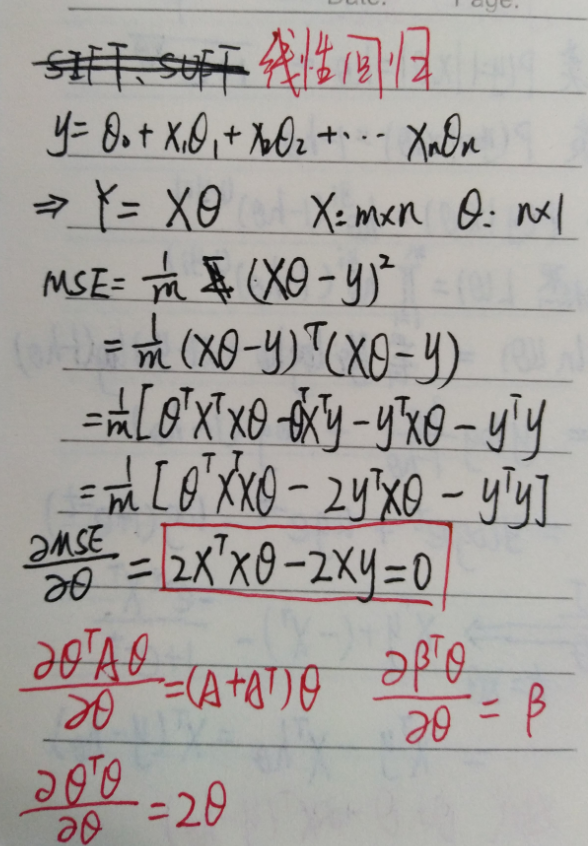 SIFT、SURF 线性回归
y = θ₀ + x₁θ₁ + x₂θ₂ + ··· xₙθₙ
⇒ Y = Xθ X: m×n θ: n×1
MSE = 1/m Σ (Xθ - y)²
= 1/m (Xθ - y)ᵀ(Xθ - y)
= 1/m [θᵀXᵀXθ - θᵀXᵀy - yᵀXθ - yᵀy
= 1/m [θᵀXᵀXθ - 2yᵀXθ - yᵀy]
∂MSE/∂θ = 2XᵀXθ - 2Xy = 0
∂θᵀAθ/∂θ = (A + Aᵀ)θ ∂βᵀθ/∂θ = β
∂θᵀθ/∂θ = 2θ